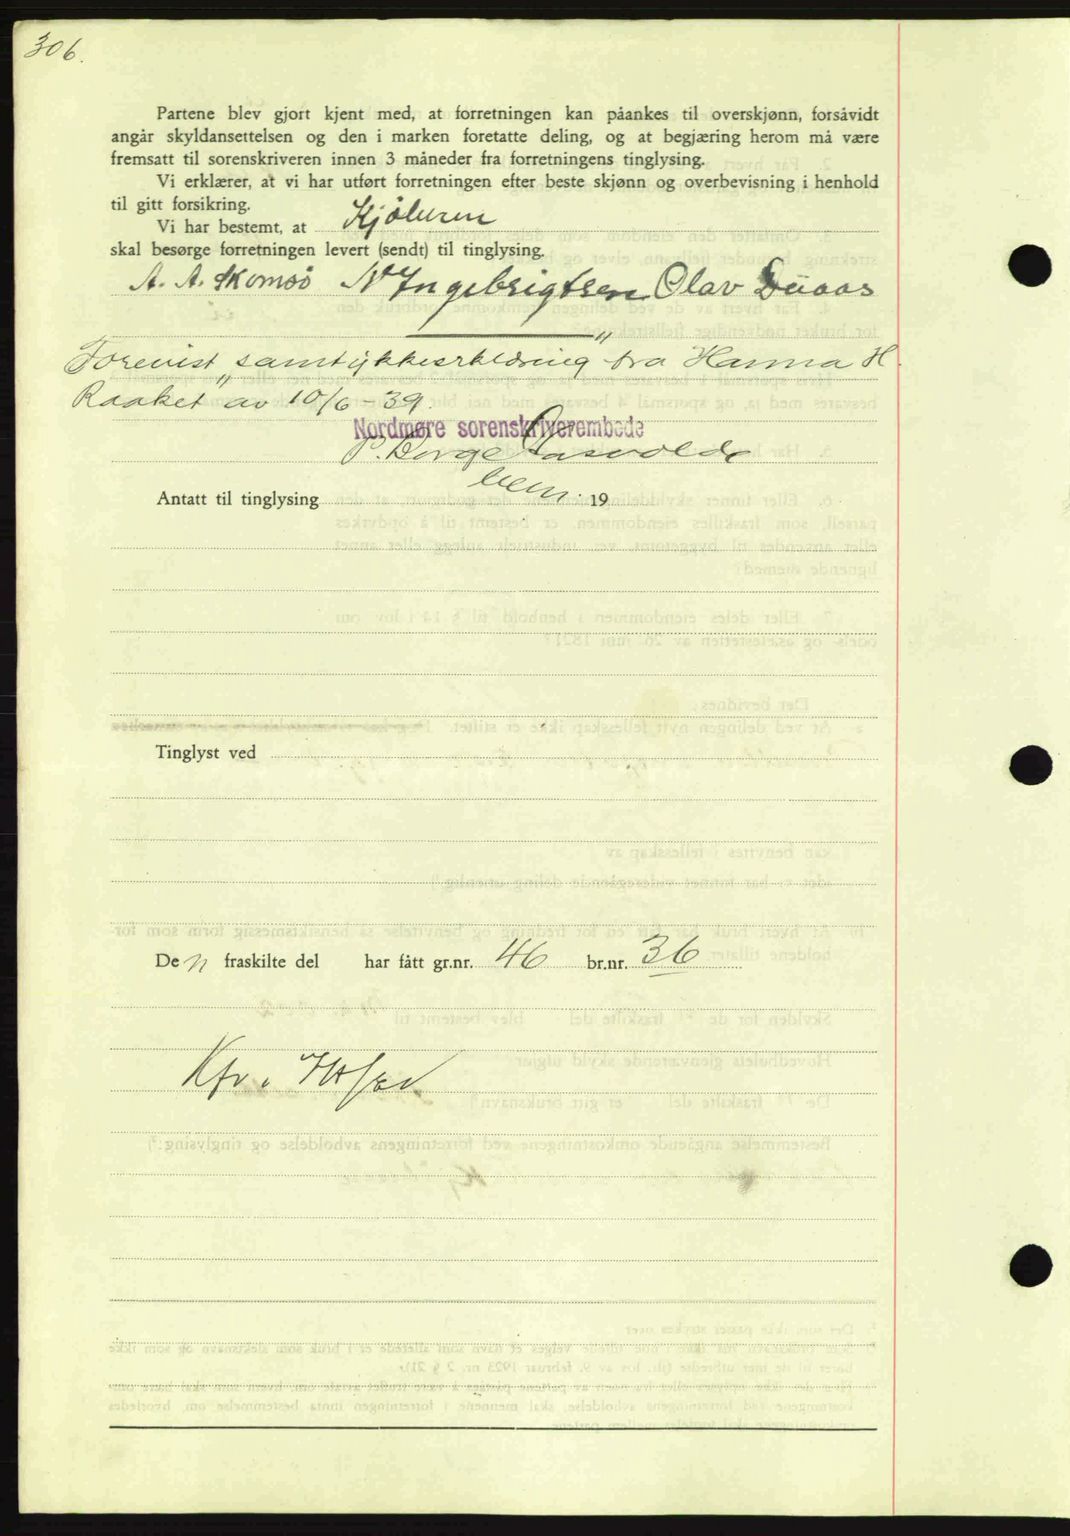 306.
Partene blev gjort kjent med, at forretningen kan påankes til overskjønn, forsåvidt
angår skyldansettelsen og den i marken foretatte deling, og at begjæring herom må være
fremsatt til sorenskriveren innen 3 måneder fra forretningens tinglysing.
Vi erklærer, at vi har utført forretningen efter beste skjønn og overbevisning i henhold
til gitt forsikring.
Vi har bestemt, at Kjöberen
skal besørge forretningen levert (sendt) til tinglysing.
A. A. Skomsö N Ingebrigtsen Olav
Forevist "samtykkeserklæring" fra Hanna H.
Raaket av 10/6-39.
Nordmøre sorenskriverembede
P. Borge
Antatt til tinglysing 19
Tinglyst ved
De n fraskilte del har fått gr.nr. 46 br.nr. 36
Kfr.